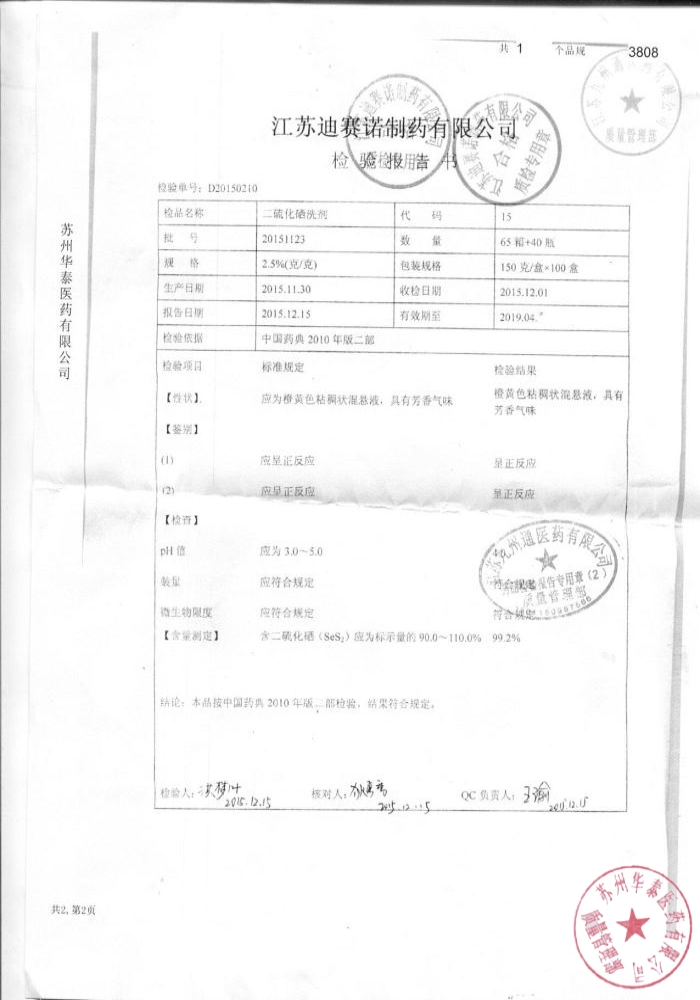 共 1 个品规 3808
江苏迪赛诺制药有限公司
检验报告书
检验单号：D20150210
检品名称 二硫化硒洗剂 代 码 15
批 号 20151123 数 量 65 箱+40 瓶
规 格 2.5%(克/克) 包装规格 150 克/盒×100 盒
生产日期 2015.11.30 收检日期 2015.12.01
报告日期 2015.12.15 有效期至 2019.04.
检验依据 中国药典 2010 年版二部
检验项目 标准规定 检验结果
【性状】 应为橙黄色粘稠状混悬液，具有芳香气味 橙黄色粘稠状混悬液，具有
芳香气味
【鉴别】
(1) 应呈正反应 呈正反应
(2) 应呈正反应 呈正反应
【检查】
pH 值 应为 3.0～5.0
装量 应符合规定 符合规定
微生物限度 应符合规定 符合规定
【含量测定】 含二硫化硒（SeS₂）应为标示量的 90.0～110.0% 99.2%
结论：本品按中国药典 2010 年版二部检验，结果符合规定。
检验人： 核对人： QC 负责人：
2015.12.15 2015.12.15 2015.12.15
苏州华泰医药有限公司
共2, 第2页
有限公司
合格
质检专用章
质量管理部
医药有限公司
报告专用章（2）
质量管理部
苏州华泰医药有限公司
质量管理部